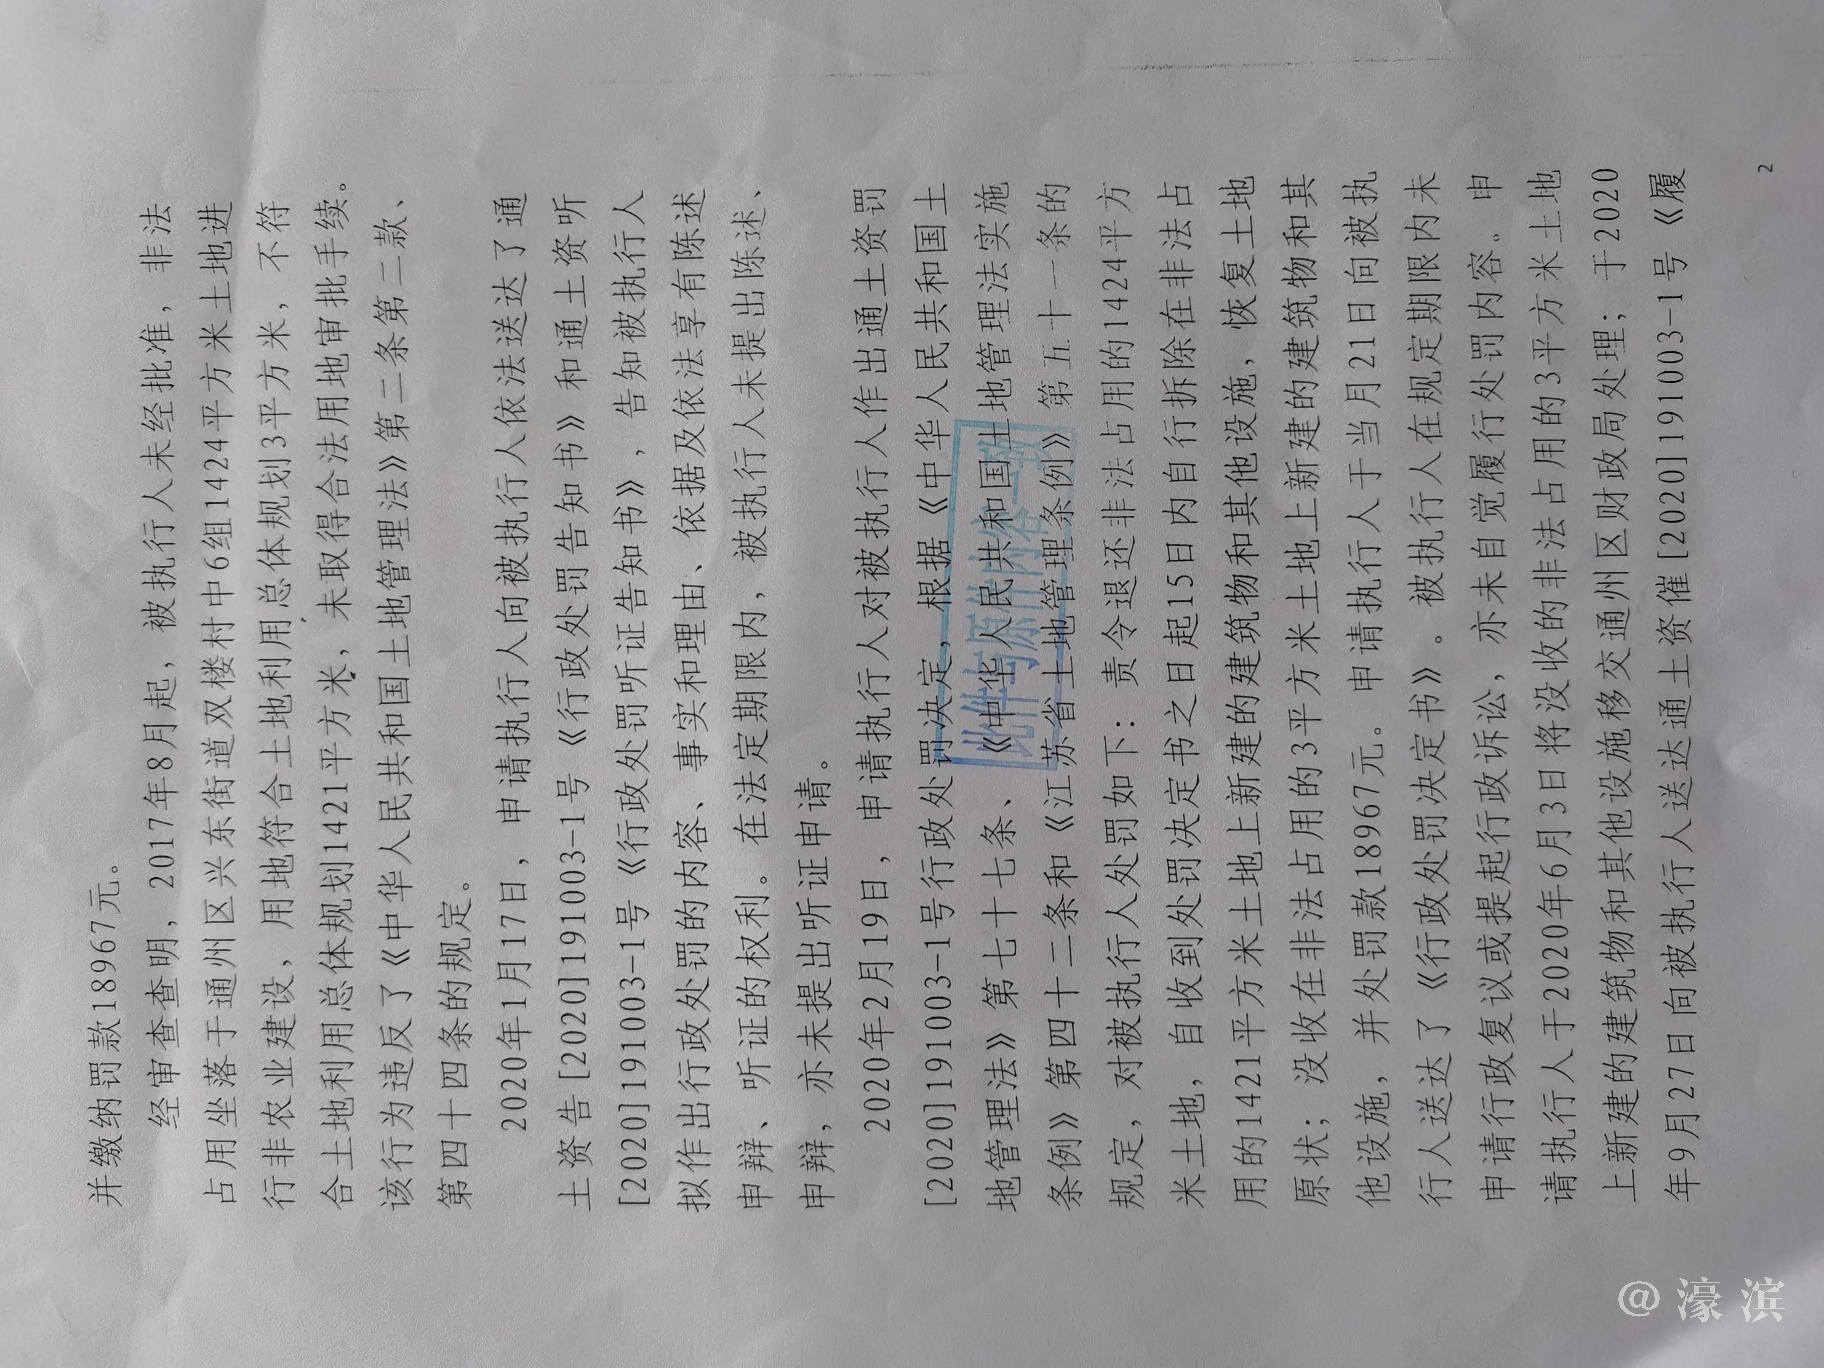 并缴纳罚款18967元。
经审查查明，2017年8月起，被执行人未经批准，非法
占用坐落于通州区兴东街道双楼村中6组1424平方米土地进
行非农业建设，用地符合土地利用总体规划3平方米，不符
合土地利用总体规划1421平方米，未取得合法用地审批手续。
该行为违反了《中华人民共和国土地管理法》第二条第二款、
第四十四条的规定。
2020年1月17日，申请执行人向被执行人依法送达了通
土资告[2020]191003-1号《行政处罚告知书》和通土资听
[2020]191003-1号《行政处罚听证告知书》，告知被执行人
拟作出行政处罚的内容、事实和理由、依据及依法享有陈述
申辩、听证的权利。在法定期限内，被执行人未提出陈述、
申辩，亦未提出听证申请。
2020年2月19日，申请执行人对被执行人作出通土资罚
[2020]191003-1号行政处罚决定，根据《中华人民共和国土
地管理法》第七十七条、《中华人民共和国土地管理法实施
条例》第四十二条和《江苏省土地管理条例》第五十一条的
规定，对被执行人处罚如下：责令退还非法占用的1424平方
米土地，自收到处罚决定书之日起15日内自行拆除在非法占
用的1421平方米土地上新建的建筑物和其他设施，恢复土地
原状；没收在非法占用的3平方米土地上新建的建筑物和其
他设施，并处罚款18967元。申请执行人于当月21日向被执
行人送达了《行政处罚决定书》。被执行人在规定期限内未
申请行政复议或提起行政诉讼，亦未自觉履行处罚内容。申
请执行人于2020年6月3日将没收的非法占用的3平方米土地
上新建的建筑物和其他设施移交通州区财政局处理；于2020
年9月27日向被执行人送达通土资催[2020]191003-1号《履
2
此件与原件内容一致
@濠滨